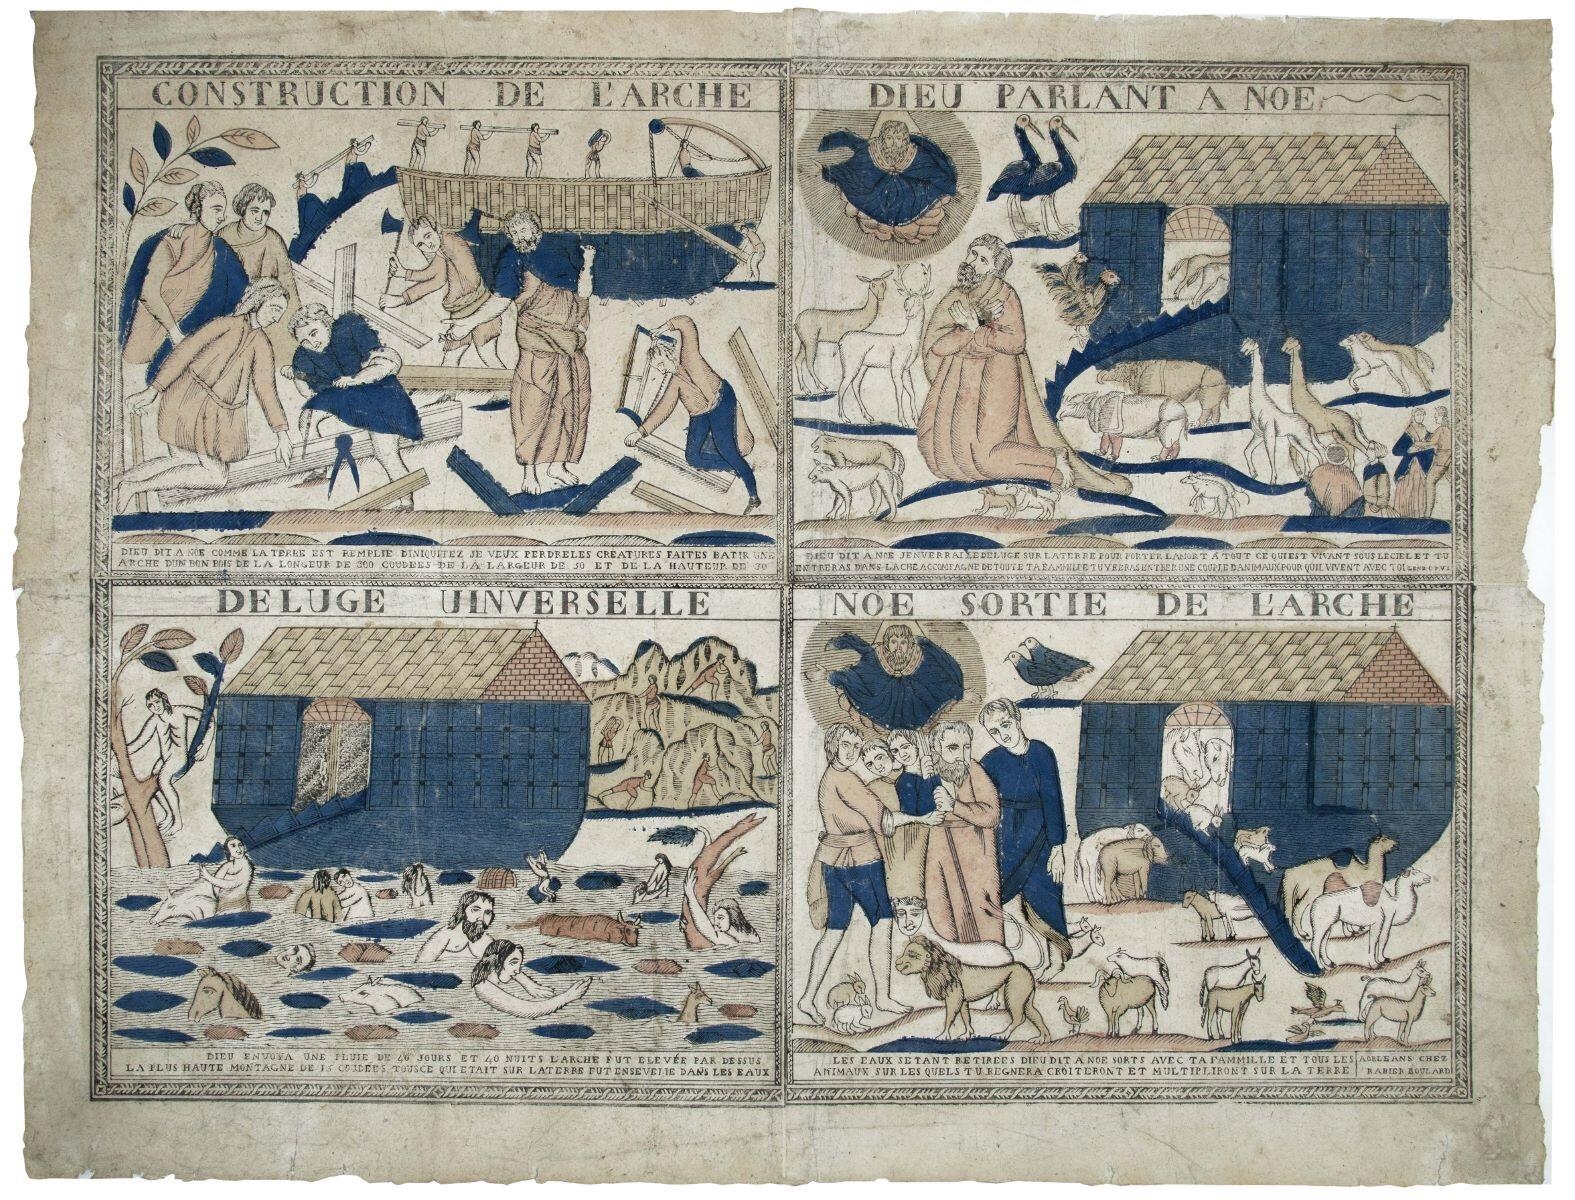 CONSTRUCTION DE L'ARCHE
DIEU DIT A NOE COMME LA TERRE EST REMPLIE DINIQUITEZ JE VEUX PERDRELES CREATURES FAITES BATIR UNE
ARCHE DUN BON BOIS DE LA LONGEUR DE 300 COUDEES DE LA LARGEUR DE 50 ET DE LA HAUTEUR DE 30
DIEU PARLANT A NOE
DIEU DIT A NOE JENVERRAI LE DELUGE SUR LA TERRE POUR PORTER LA MORT A TOUT CE QUI EST VIVANT SOUS LE CIEL ET TU
ENTRERAS DANS LACHE ACCOMPAGNE DE TOUTE TA FAMILLE TU VERRAS ENTRER UNE COUPLE DANIMAUX POUR QUIL VIVENT AVEC TOI
DELUGE UINVERSELLE
DIEU ENVOYA UNE PLUIE DE 40 JOURS ET 40 NUITS L'ARCHE FUT ELEVÉE PAR DESSUS
LA PLUS HAUTE MONTAGNE DE 15 COUDEES TOUSCE QUI ETAIT SUR LATERRE FUT ENSEVELIE DANS LES EAUX
NOE SORTIE DE L'ARCHE
LES EAUX SETANT RETIREES DIEU DIT A NOE SORTS AVEC TA FAMMILLE ET TOUS LES
ANIMAUX SUR LES QUELS TU REGNERA CROITERONT ET MULTIPLIRONT SUR LA TERRE
A ORLEANS CHEZ
RABIER BOULARD